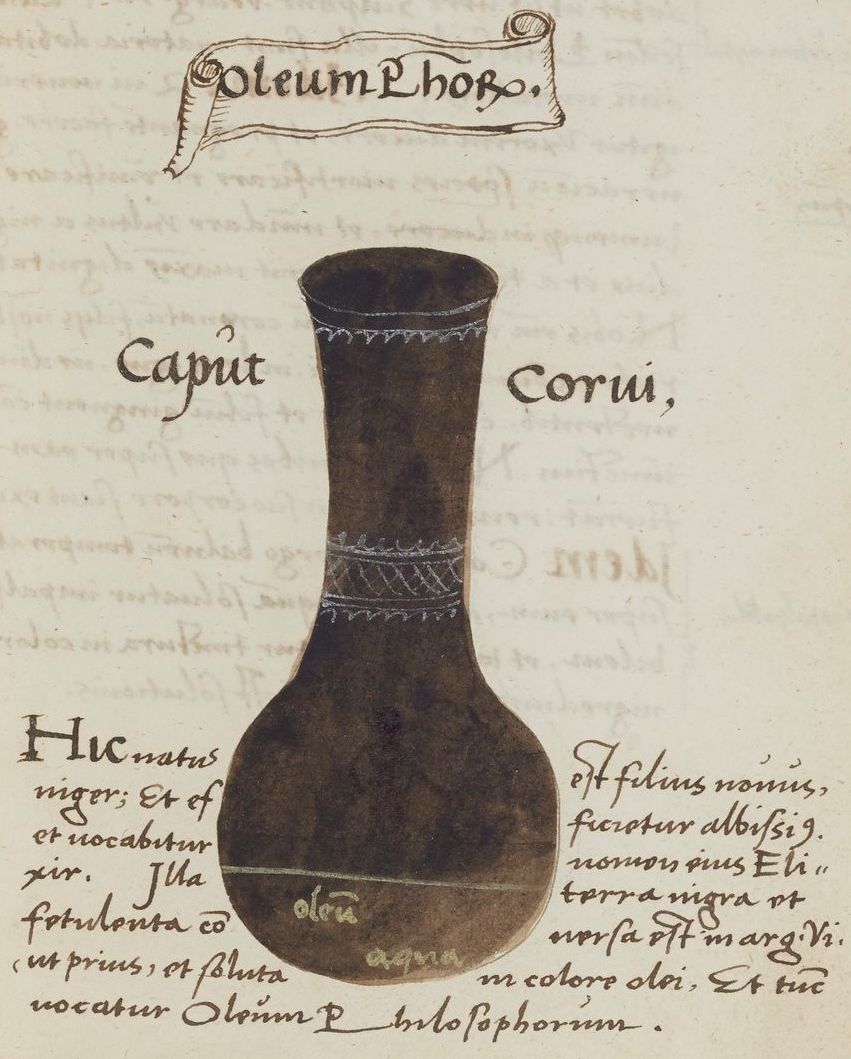 Oleum Phōꝝ.
Capût
Corui,
Hic natus est filius nouus,
niger; Et efficietur albissiꝯ.
et uocabitur nomen eius Eli=
xir. Illa terra nigra et
fetulenta cō uersa est in arg. Vi.
ut prius, et soluta in colore olei. Et tūc
uocatur Oleum Philosophorum.
oleū
aqua